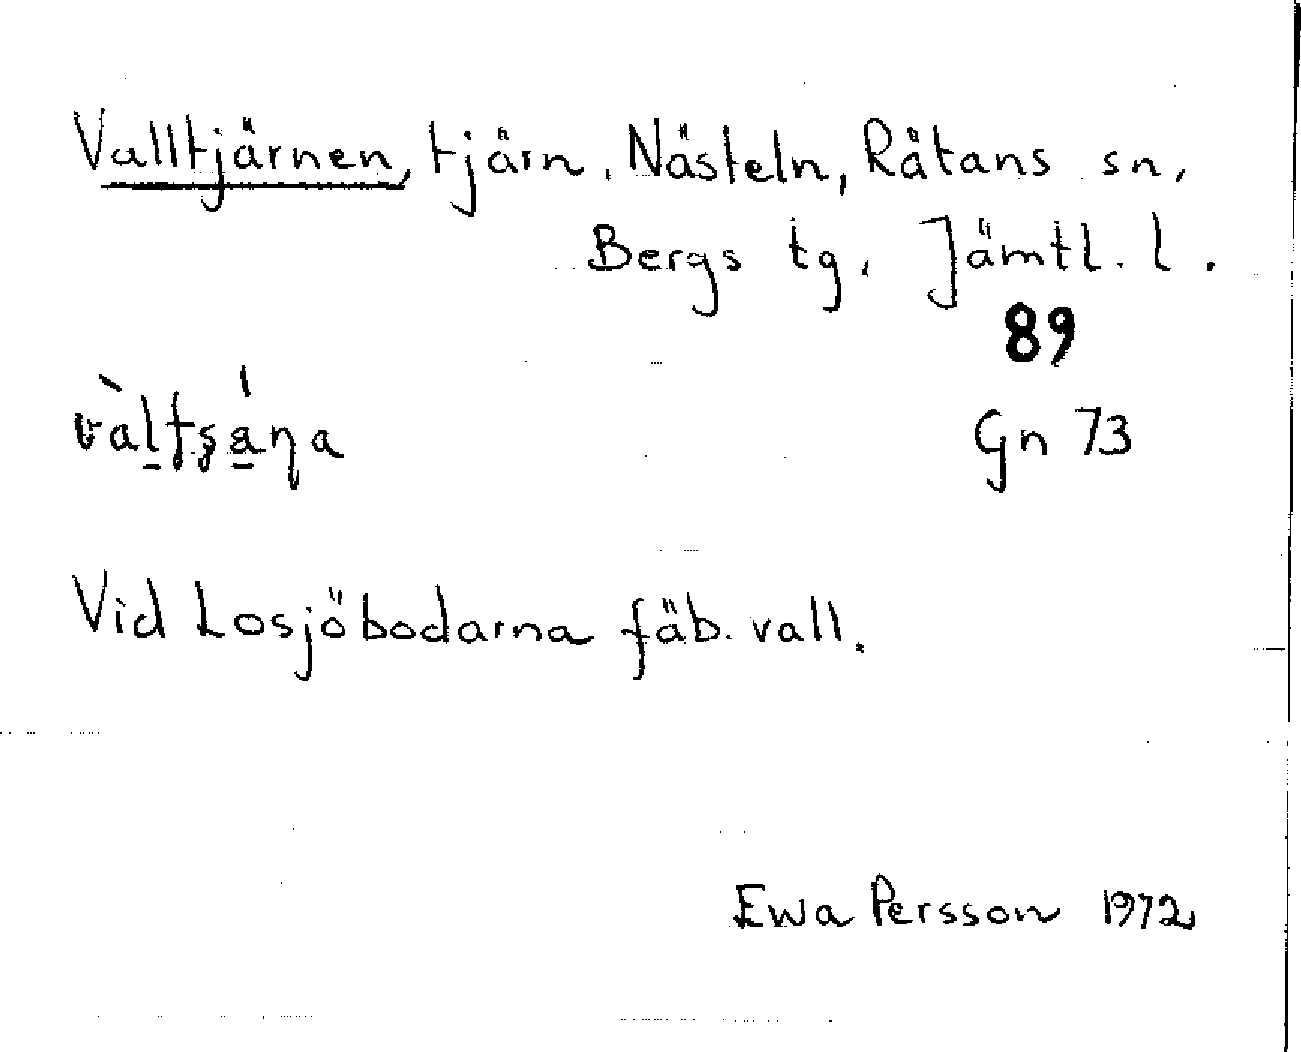 Valltjärnen, tjärn, Nästeln, Rätans sn,
Bergs tg, Jämtl. l.
89
Gn 73
Vid Losjöbodarna fäb. vall.
Ewa Persson 1972